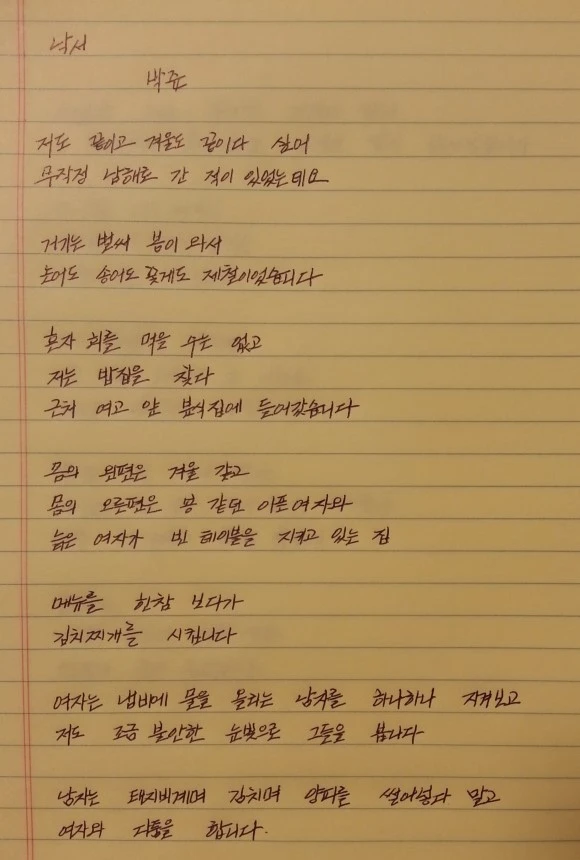 낙서
박준
저도 끝이고 겨울도 끝이다 싶어
무작정 남해로 간 적이 있었는데요
거기는 벌써 봄이 와서
농어도 숭어도 꽃게도 제철이었습니다
혼자 회를 먹을 수는 없고
저는 밥집을 찾다
근처 여고 앞 분식집에 들어갔습니다
몸의 왼편은 겨울 같고
몸의 오른편은 봄 같던 아픈 여자와
늙은 여자가 빈 테이블을 지키고 있는 집
메뉴를 한참 보다가
김치찌개를 시킵니다
여자는 냄비에 물을 올리는 남자를 하나하나 지켜보고
저도 조금 불안한 눈빛으로 그들을 봅니다
남자는 돼지비계며 김치며 양파를 썰어넣다 말고
여자와 다툼을 합니다.